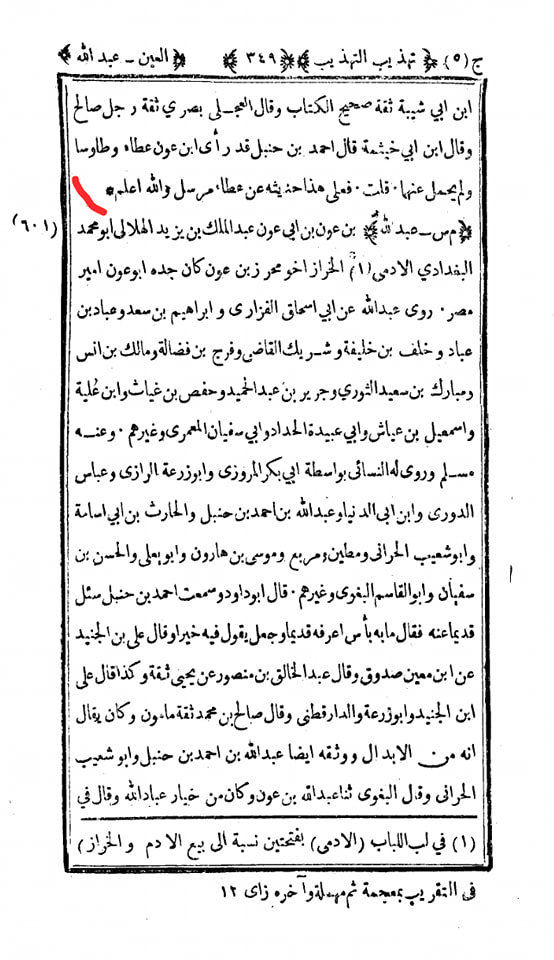 ج (٥) ﴿ تهذيب التهذيب ﴾ ﴿ ٣٤٩ ﴾ ﴿ العين ـ عبد الله ﴾
ابن ابي شيبة ثقة صحيح الكتاب وقال العجلى بصري ثقة رجل صالح
وقال ابن ابي خيثمة قال احمد بن حنبل قد رأى ابن عون عطاء وطاوسا
ولم يحمل عنها٠ قلت٠ فعلى هذا حديثه عن عطاء مرسل والله اعلم٭
﴿ م س ـ عبد الله ﴾ بن عون بن ابي عون عبد الملك بن يزيد الهلالى ابو محمد (٦٠١)
البغدادي الادمى (١) الخراز اخو محرز بن عون كان جده ابو عون امير
مصر٠ روى عبد الله عن ابي اسحاق الفزارى و ابراهيم بن سعد وعباد بن
عباد و خلف بن خليفة و شريك القاضى وفرج بن فضالة ومالك بن انس
ومبارك بن سعيد الثوري وجرير بن عبد الحميد وحفص بن غياث وابن علية
واسمعيل بن عياش وابي عبيدة الحداد وابي سفيان المعمرى وغيرهم ٠ وعنه
مسلم وروى له النسائى بواسطة ابي بكر المروزى وابو زرعة الرازى وعباس
الدورى وابن ابى الدنيا وعبد الله بن احمد بن حنبل والحارث بن ابي اسامة
وابو شعيب الحرانى ومطين ومربع وموسى بن هارون وابو يعلى والحسن بن
سفيان وابو القاسم البغوى وغيرهم ٠ قال ابو داود وسمعت احمد بن حنبل سئل
قديما عنه فقال مابه بأس اعرفه قديما وجعل يقول فيه خيرا وقال على بن الجنيد
عن ابن معين صدوق وقال عبد الخالق بن منصور عن يحيى ثقة وكذا قال على
ابن الجنيد وابو زرعة والدار قطنى وقال صالح بن محمد ثقة مامون وكان يقال
انه من الابدال ووثقه ايضا عبد الله بن احمد بن حنبل وابو شعيب
الحرانى وقال البغوى ثنا عبد الله بن عون وكان من خيار عباد الله وقال في
(١) في لب اللباب (الادمى) بفتحتين نسبة الى بيع الادم و الخراز)
فى التقريب بمعجمة ثم مهملة وآخره زاى ١٢